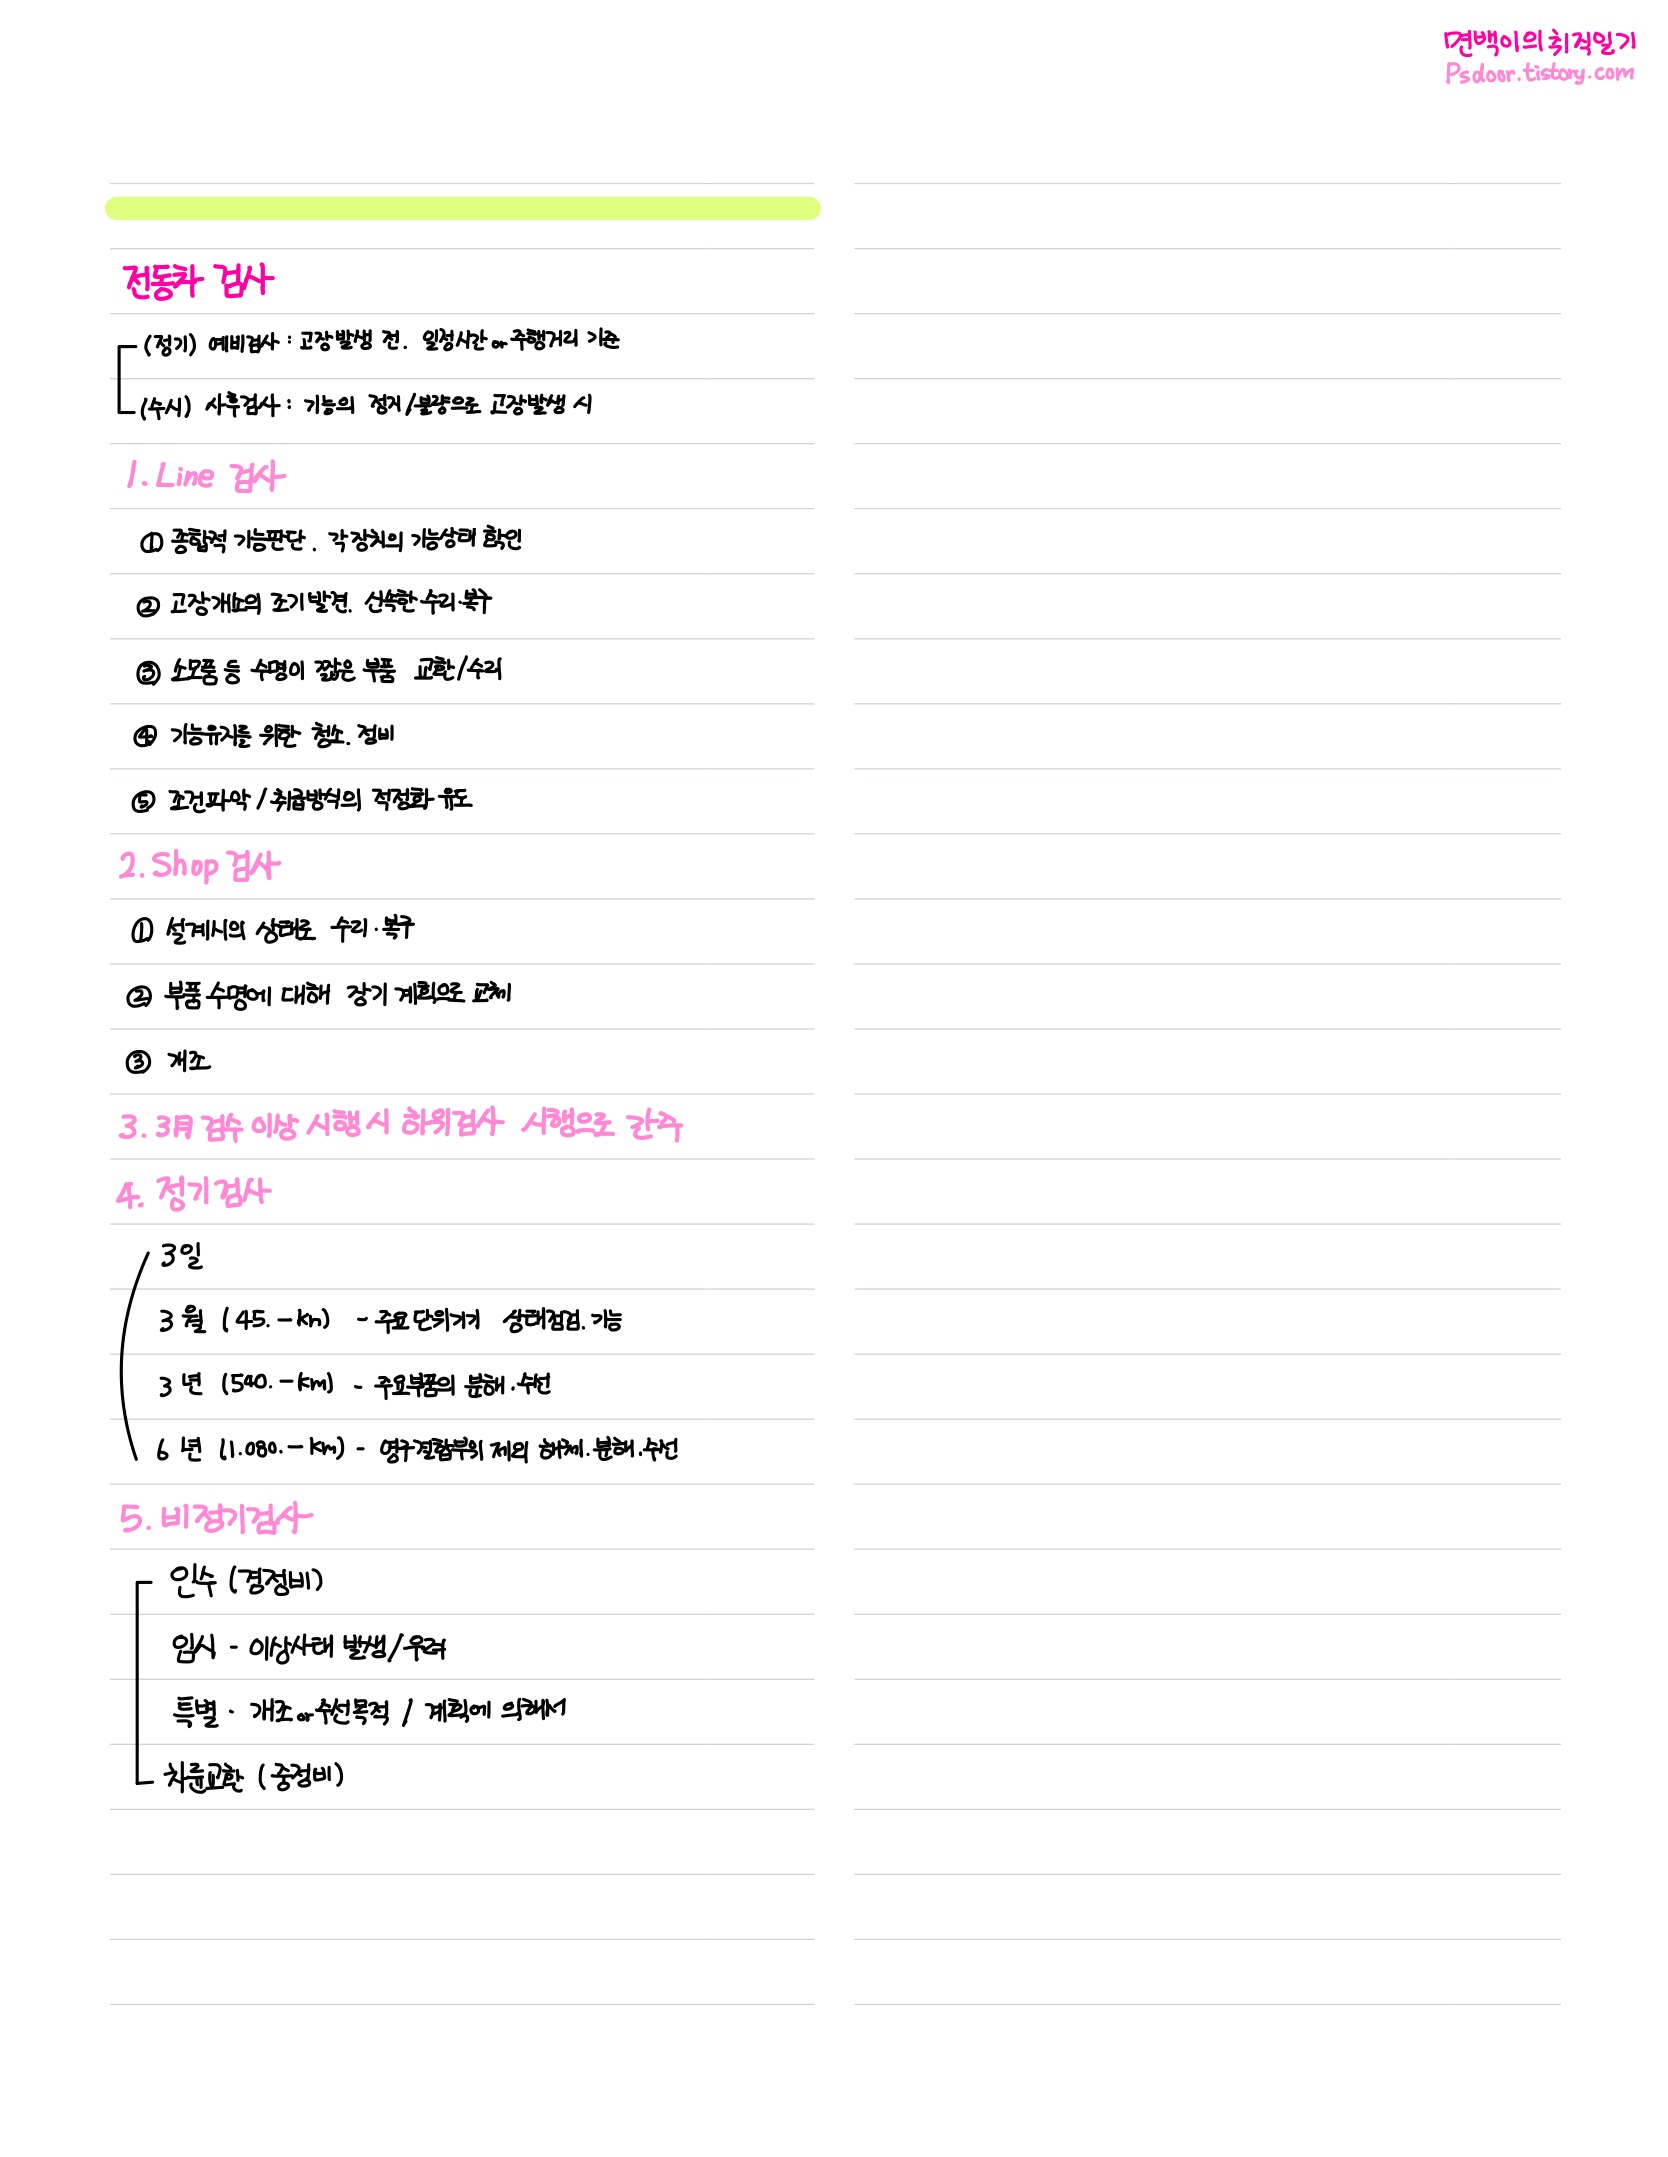 면백이의 취직일기
Psdoor.tistory.com
전동차 검사
(정기) 예비검사 : 고장발생 전. 일정시간 or 주행거리 기준
(수시) 사후검사 : 기능의 정지/불량으로 고장발생 시
1. Line 검사
① 종합적 기능판단. 각 장치의 기능상태 확인
② 고장개소의 조기발견. 신속한 수리·복구
③ 소모품 등 수명이 짧은 부품 교환/수리
④ 기능유지를 위한 청소. 정비
⑤ 조건파악 / 취급방식의 적정화 유도
2. Shop 검사
① 설계시의 상태로 수리·복구
② 부품 수명에 대해 장기 계획으로 교체
③ 개조
3. 3月 검수 이상 시행 시 하위검사 시행으로 간주
4. 정기검사
3일
3월 (45.-km) - 주요 단위기기 상태점검. 기능
3년 (540.-km) - 주요부품의 분해.수선
6년 (1.080.-km) - 영구결합부위 제외 해체.분해.수선
5. 비정기검사
인수 (경정비)
임시 - 이상사태 발생/우려
특별 - 개조 or 수선목적 / 계획에 의해서
차륜교환 (중정비)